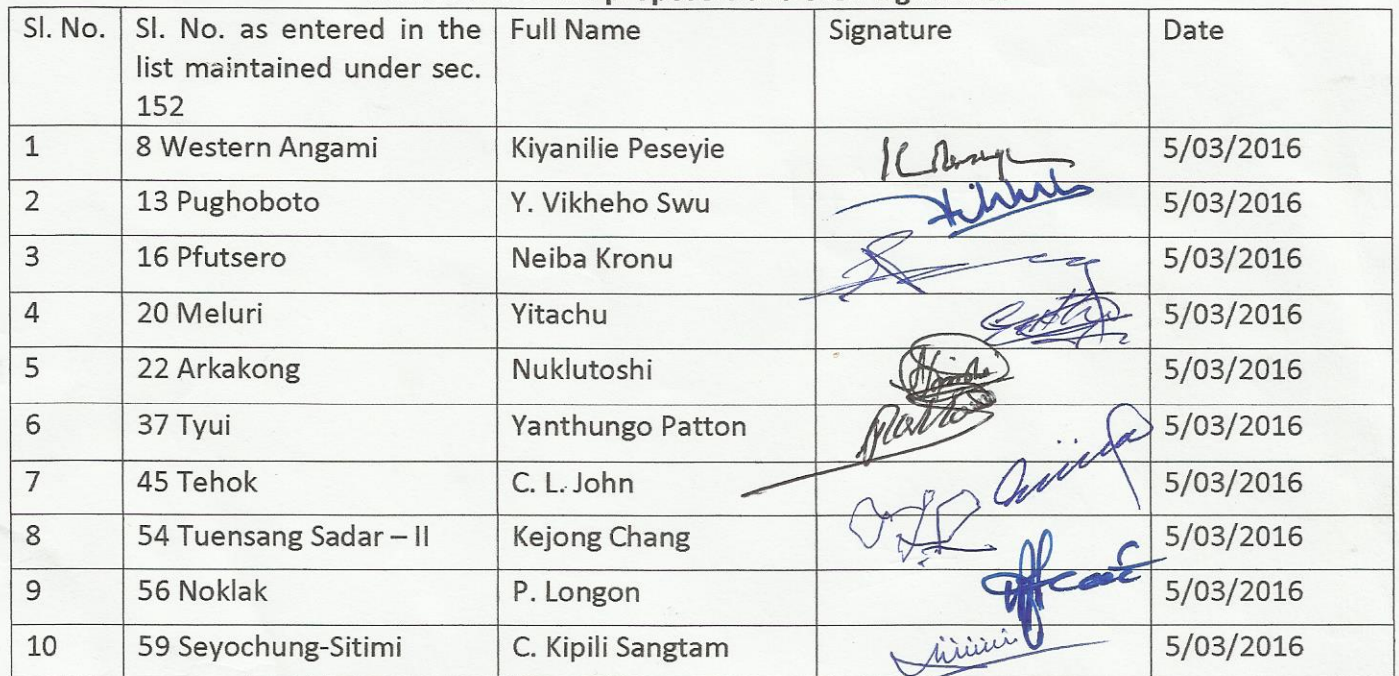 Sl. No. Sl. No. as entered in the Full Name Signature Date
list maintained under sec.
152
1 8 Western Angami Kiyanilie Peseyie 5/03/2016
2 13 Pughoboto Y. Vikheho Swu 5/03/2016
3 16 Pfutsero Neiba Kronu 5/03/2016
4 20 Meluri Yitachu 5/03/2016
5 22 Arkakong Nuklutoshi 5/03/2016
6 37 Tyui Yanthungo Patton 5/03/2016
7 45 Tehok C. L. John 5/03/2016
8 54 Tuensang Sadar – II Kejong Chang 5/03/2016
9 56 Noklak P. Longon 5/03/2016
10 59 Seyochung-Sitimi C. Kipili Sangtam 5/03/2016